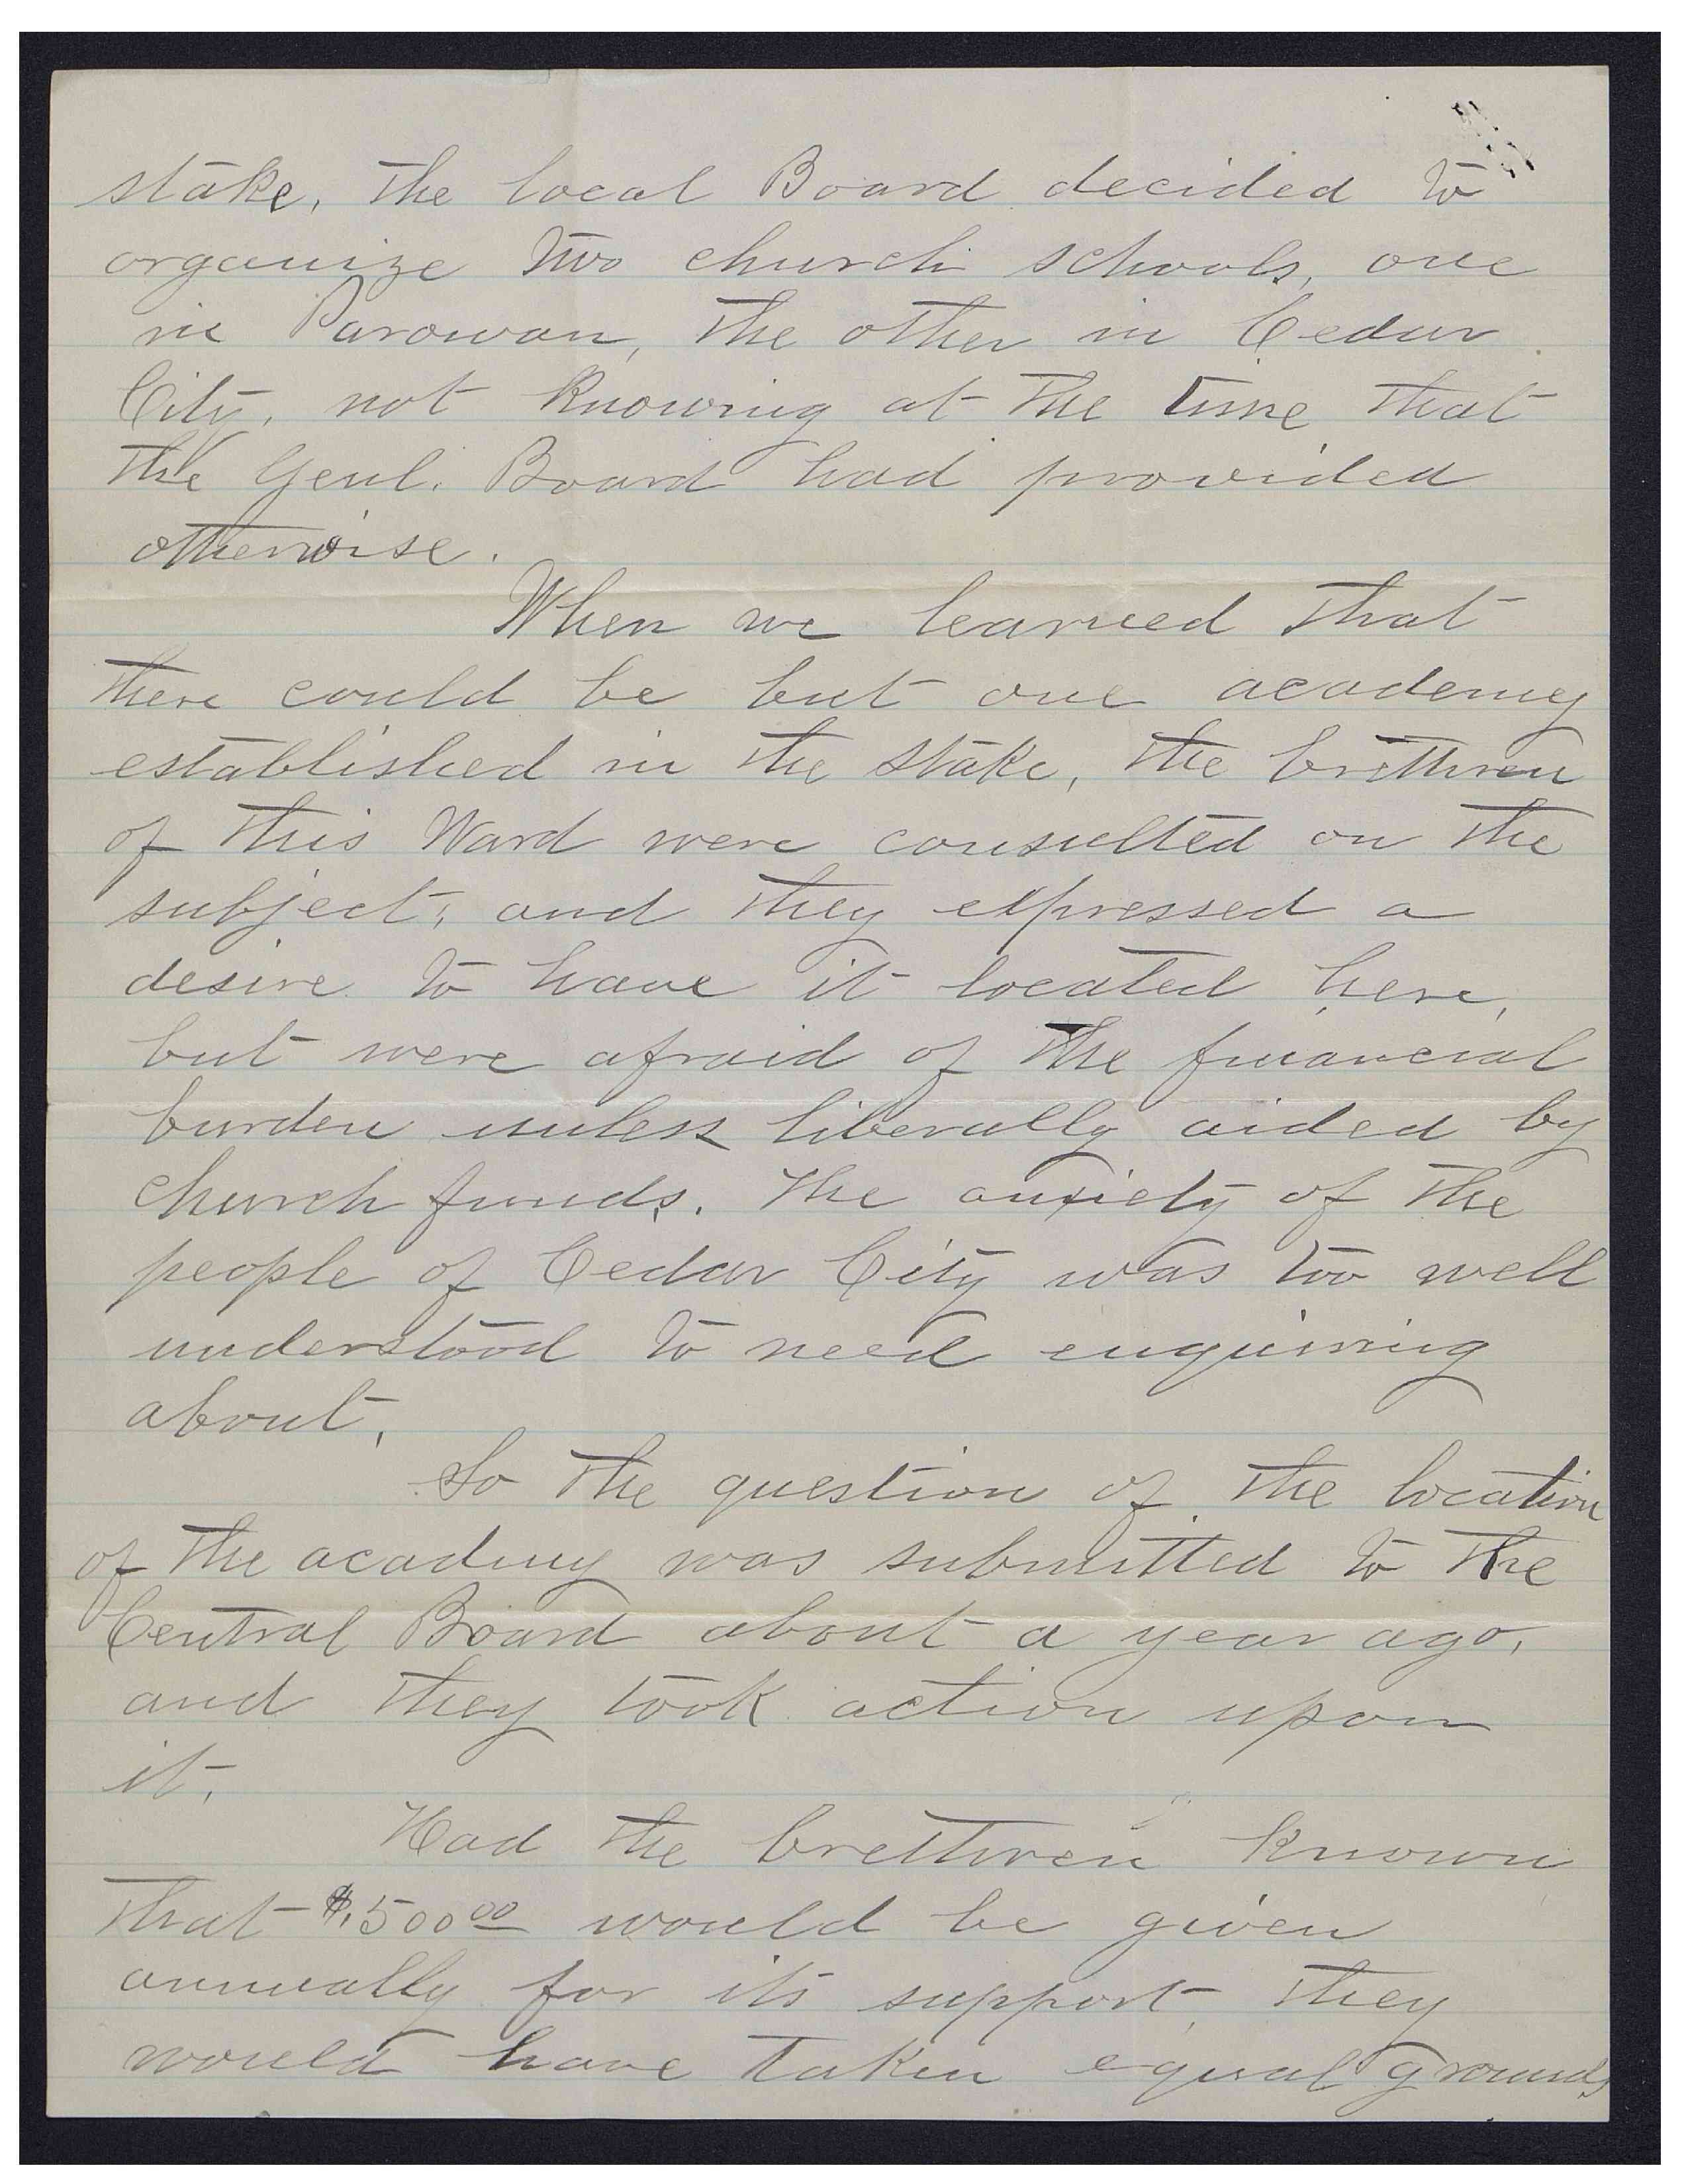 stake, the local Board decided to
organize two church schools, one
in Parowan, the other in Cedar
City, not knowing at the time that
the Genl. Board had provided
otherwise.
When we learned that
there could be but one academy
established in the stake, the brethren
of this Ward were consulted on the
subject, and they expressed a
desire to have it located here,
but were afraid of the financial
burden unless liberally aided by
church funds. The anxiety of the
people of Cedar City was too well
understood to need enquiring
about.
So the question of the location
of the academy was submitted to the
Central Board about a year ago,
and they took action upon
it.
Had the brethren known
that $1500 00 would be given
annually for its support, they
would have taken equal grounds